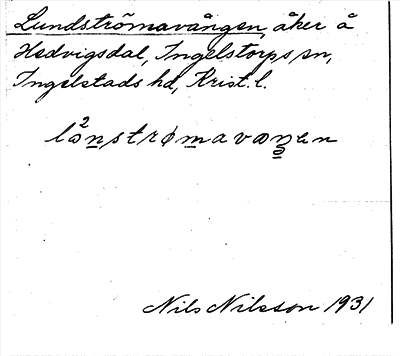 Lundströmavången, åker å
Hedvigsdal, Ingelstorps sn,
Ingelstads hd, Krist. l.
Nils Nilsson 1931